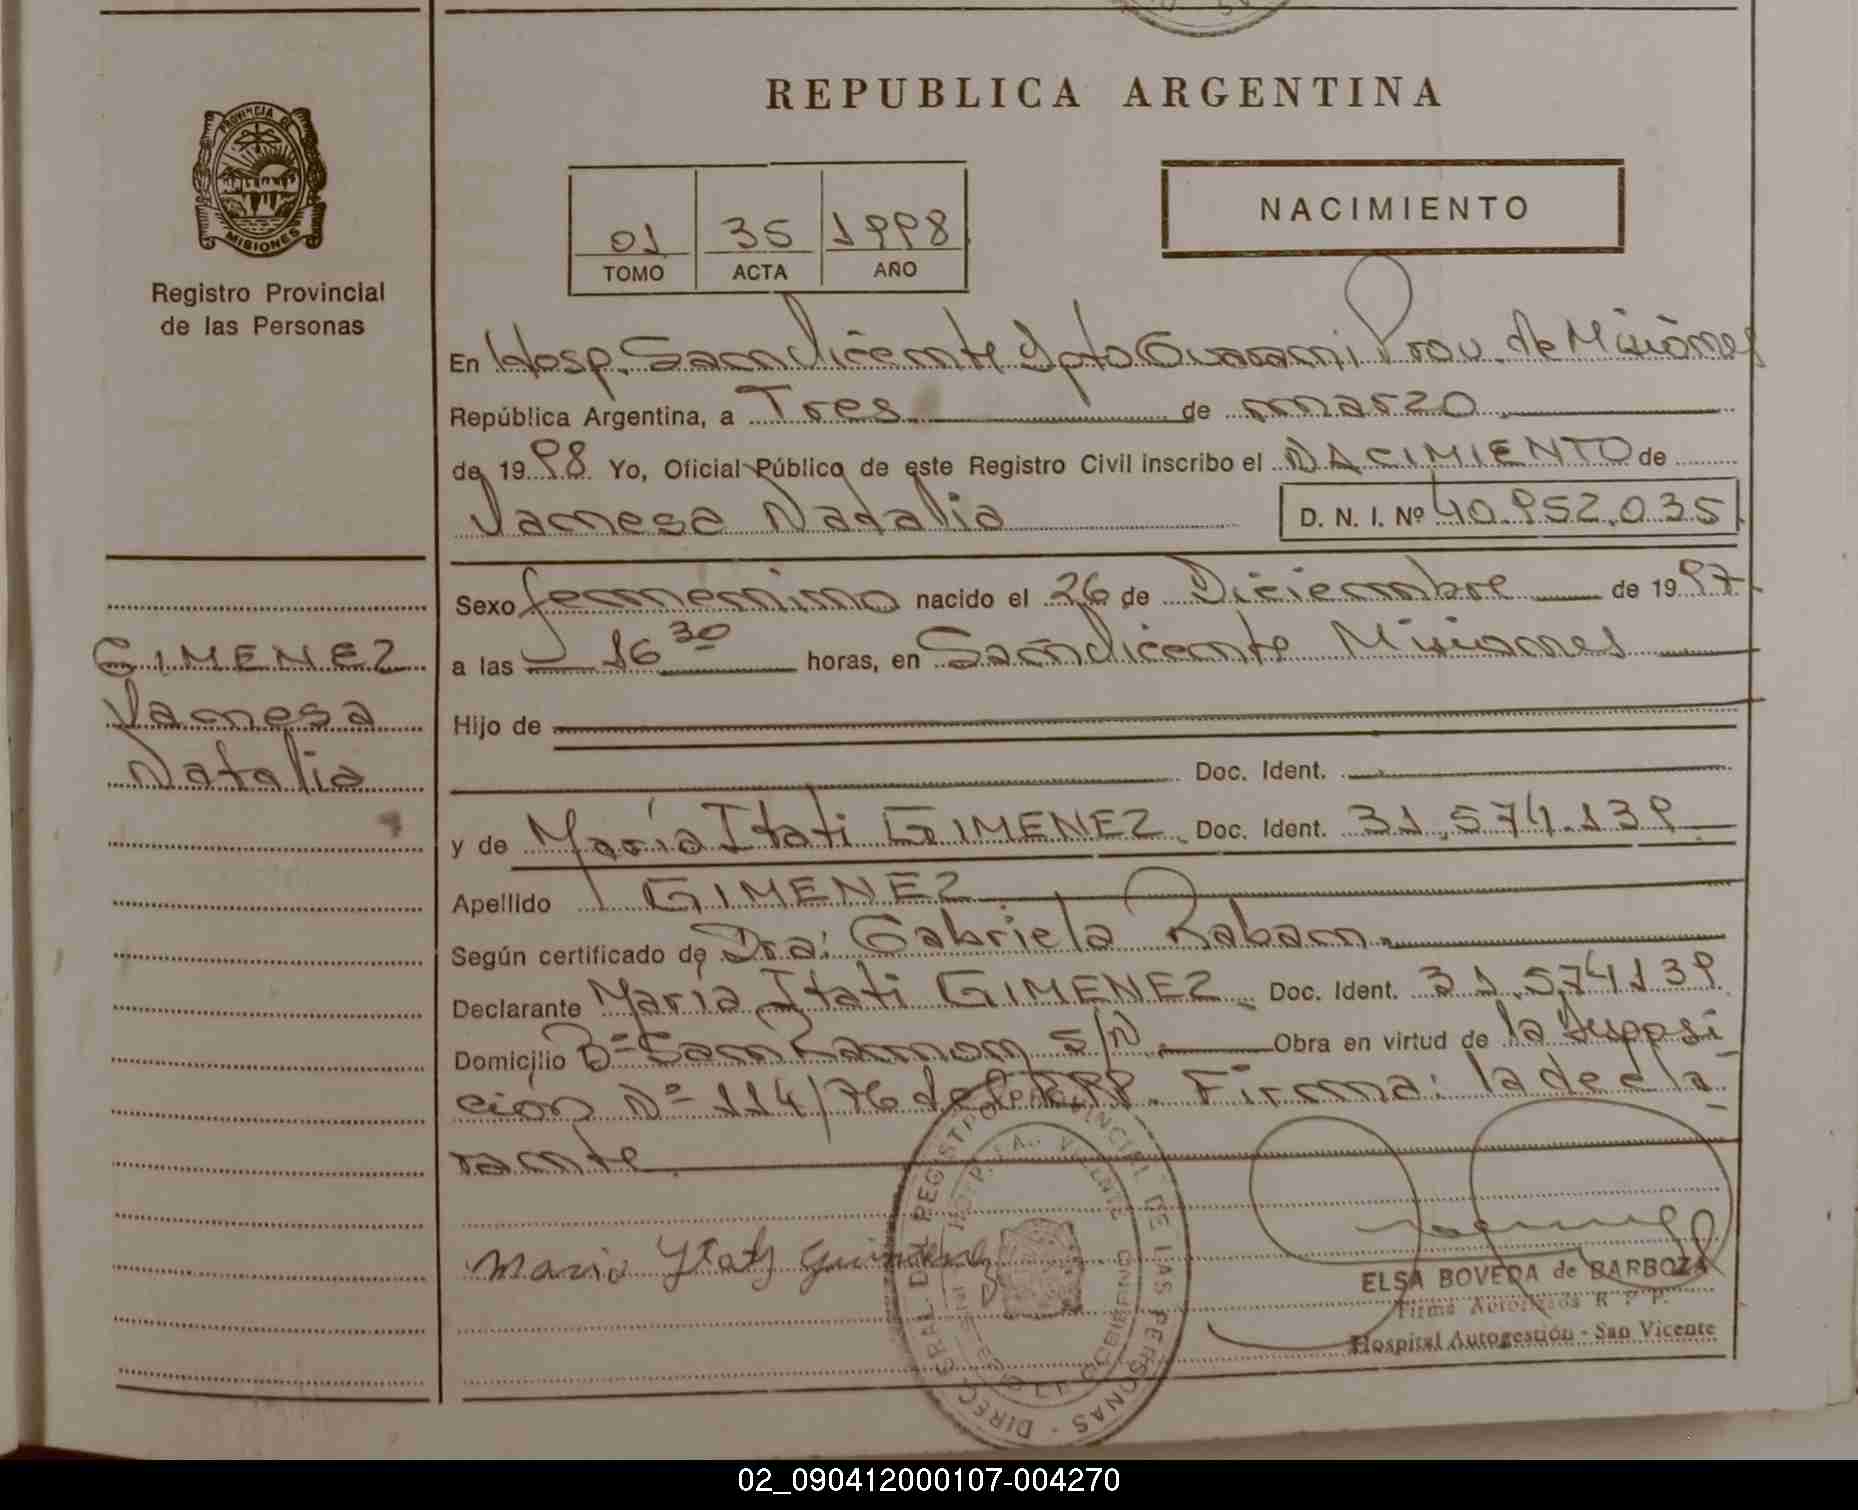 REPUBLICA ARGENTINA
PROVINCIA DE
MISIONES
Registro Provincial
de las Personas
01 35 1998
TOMO ACTA AÑO
NACIMIENTO
En Hosp. San Vicente Dpto Guarani Prov. de Misiones
República Argentina, a Tres de marzo
de 1998 Yo, Oficial Público de este Registro Civil inscribo el NACIMIENTO de
Vanesa Natalia D. N. I. Nº 40.952.035
Sexo femenino nacido el 26 de Diciembre de 1997
a las 16 30 horas, en San Vicente Misiones
GIMENEZ
Vanesa
Natalia
Hijo de
Doc. Ident.
y de María Itati GIMENEZ Doc. Ident. 31.574.139
Apellido GIMENEZ
Según certificado de Dra: Gabriela Raban
Declarante María Itati GIMENEZ Doc. Ident. 31.574139
Domicilio Bº San Ramon S/N Obra en virtud de la Disposi
ción Nº 114/76 del RPP. Firma: la decla
rante
Maria Ytaty Guimenez
DIREC. GRAL. DEL REGISTRO PROVINCIAL DE LAS PERSONAS
ELSA BOVERA de BARBOZA
Firma Autorizada R. P. P.
Hospital Autogestión - San Vicente
02_090412000107-004270